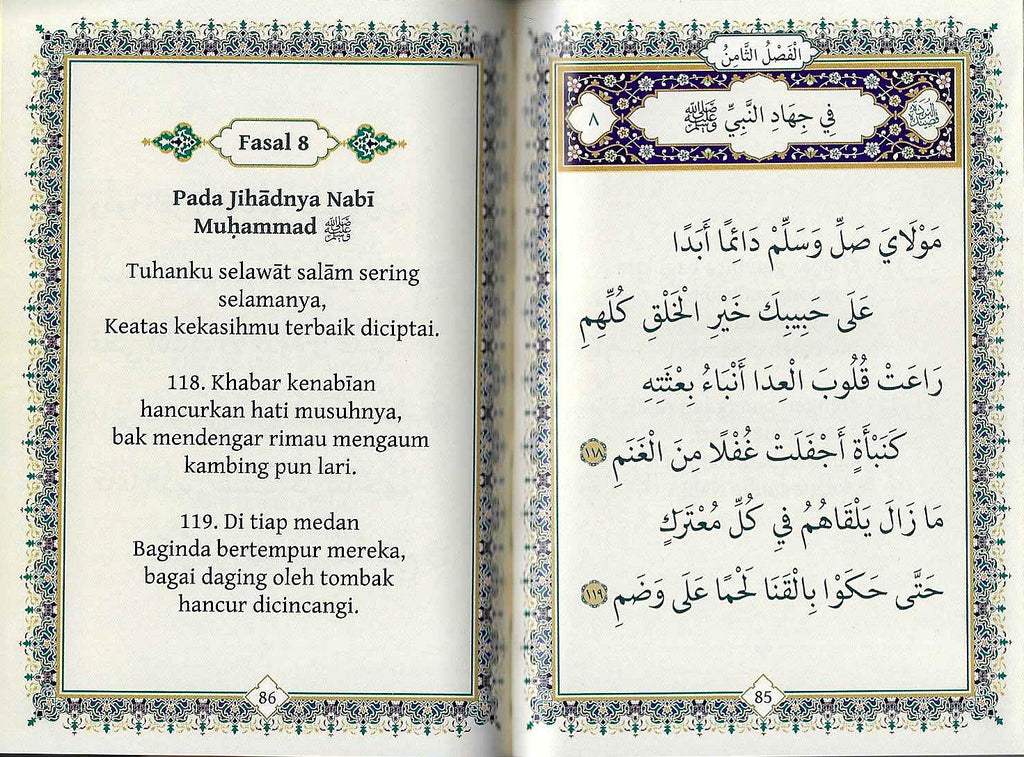 الْفَصْلُ الثَّامِنُ
فِي جِهَادِ النَّبِيِّ ﷺ
٨
مَوْلَايَ صَلِّ وَسَلِّمْ دَائِمًا أَبَدًا
عَلَى حَبِيبِكَ خَيْرِ الْخَلْقِ كُلِّهِمِ
رَاعَتْ قُلُوبَ الْعِدَا أَنْبَاءُ بِعْثَتِهِ
كَنَبْأَةٍ أَجْفَلَتْ غُفْلًا مِنَ الْغَنَمِ ١١٨
مَا زَالَ يَلْقَاهُمُ فِي كُلِّ مُعْتَرَكٍ
حَتَّى حَكَوْا بِالْقَنَا لَحْمًا عَلَى وَضَمِ ١١٩
85
Fasal 8
Pada Jihādnya Nabī
Muḥammad ﷺ
Tuhanku selawāt salām sering
selamanya,
Keatas kekasihmu terbaik diciptai.
118. Khabar kenabīan
hancurkan hati musuhnya,
bak mendengar rimau mengaum
kambing pun lari.
119. Di tiap medan
Baginda bertempur mereka,
bagai daging oleh tombak
hancur dicincangi.
86